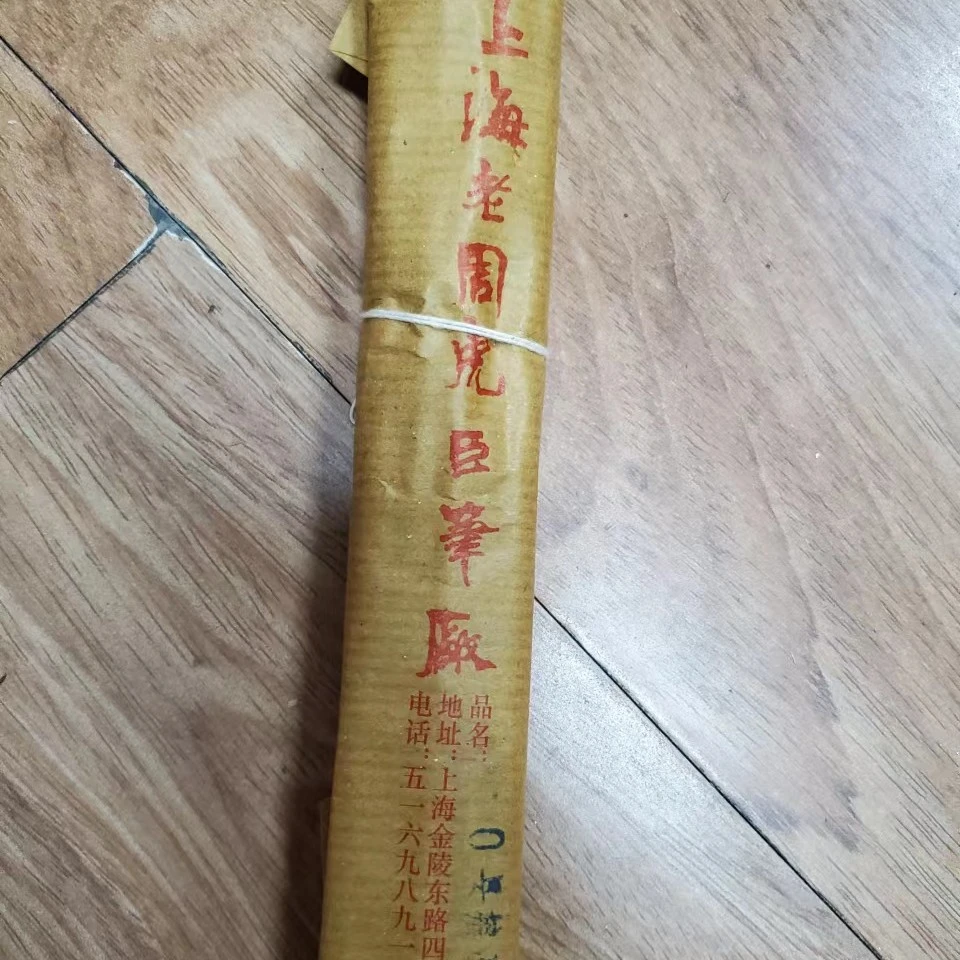 上海老周虎臣筆厰
品名：
地址：上海金陵东路四
电话：五一六九八九一